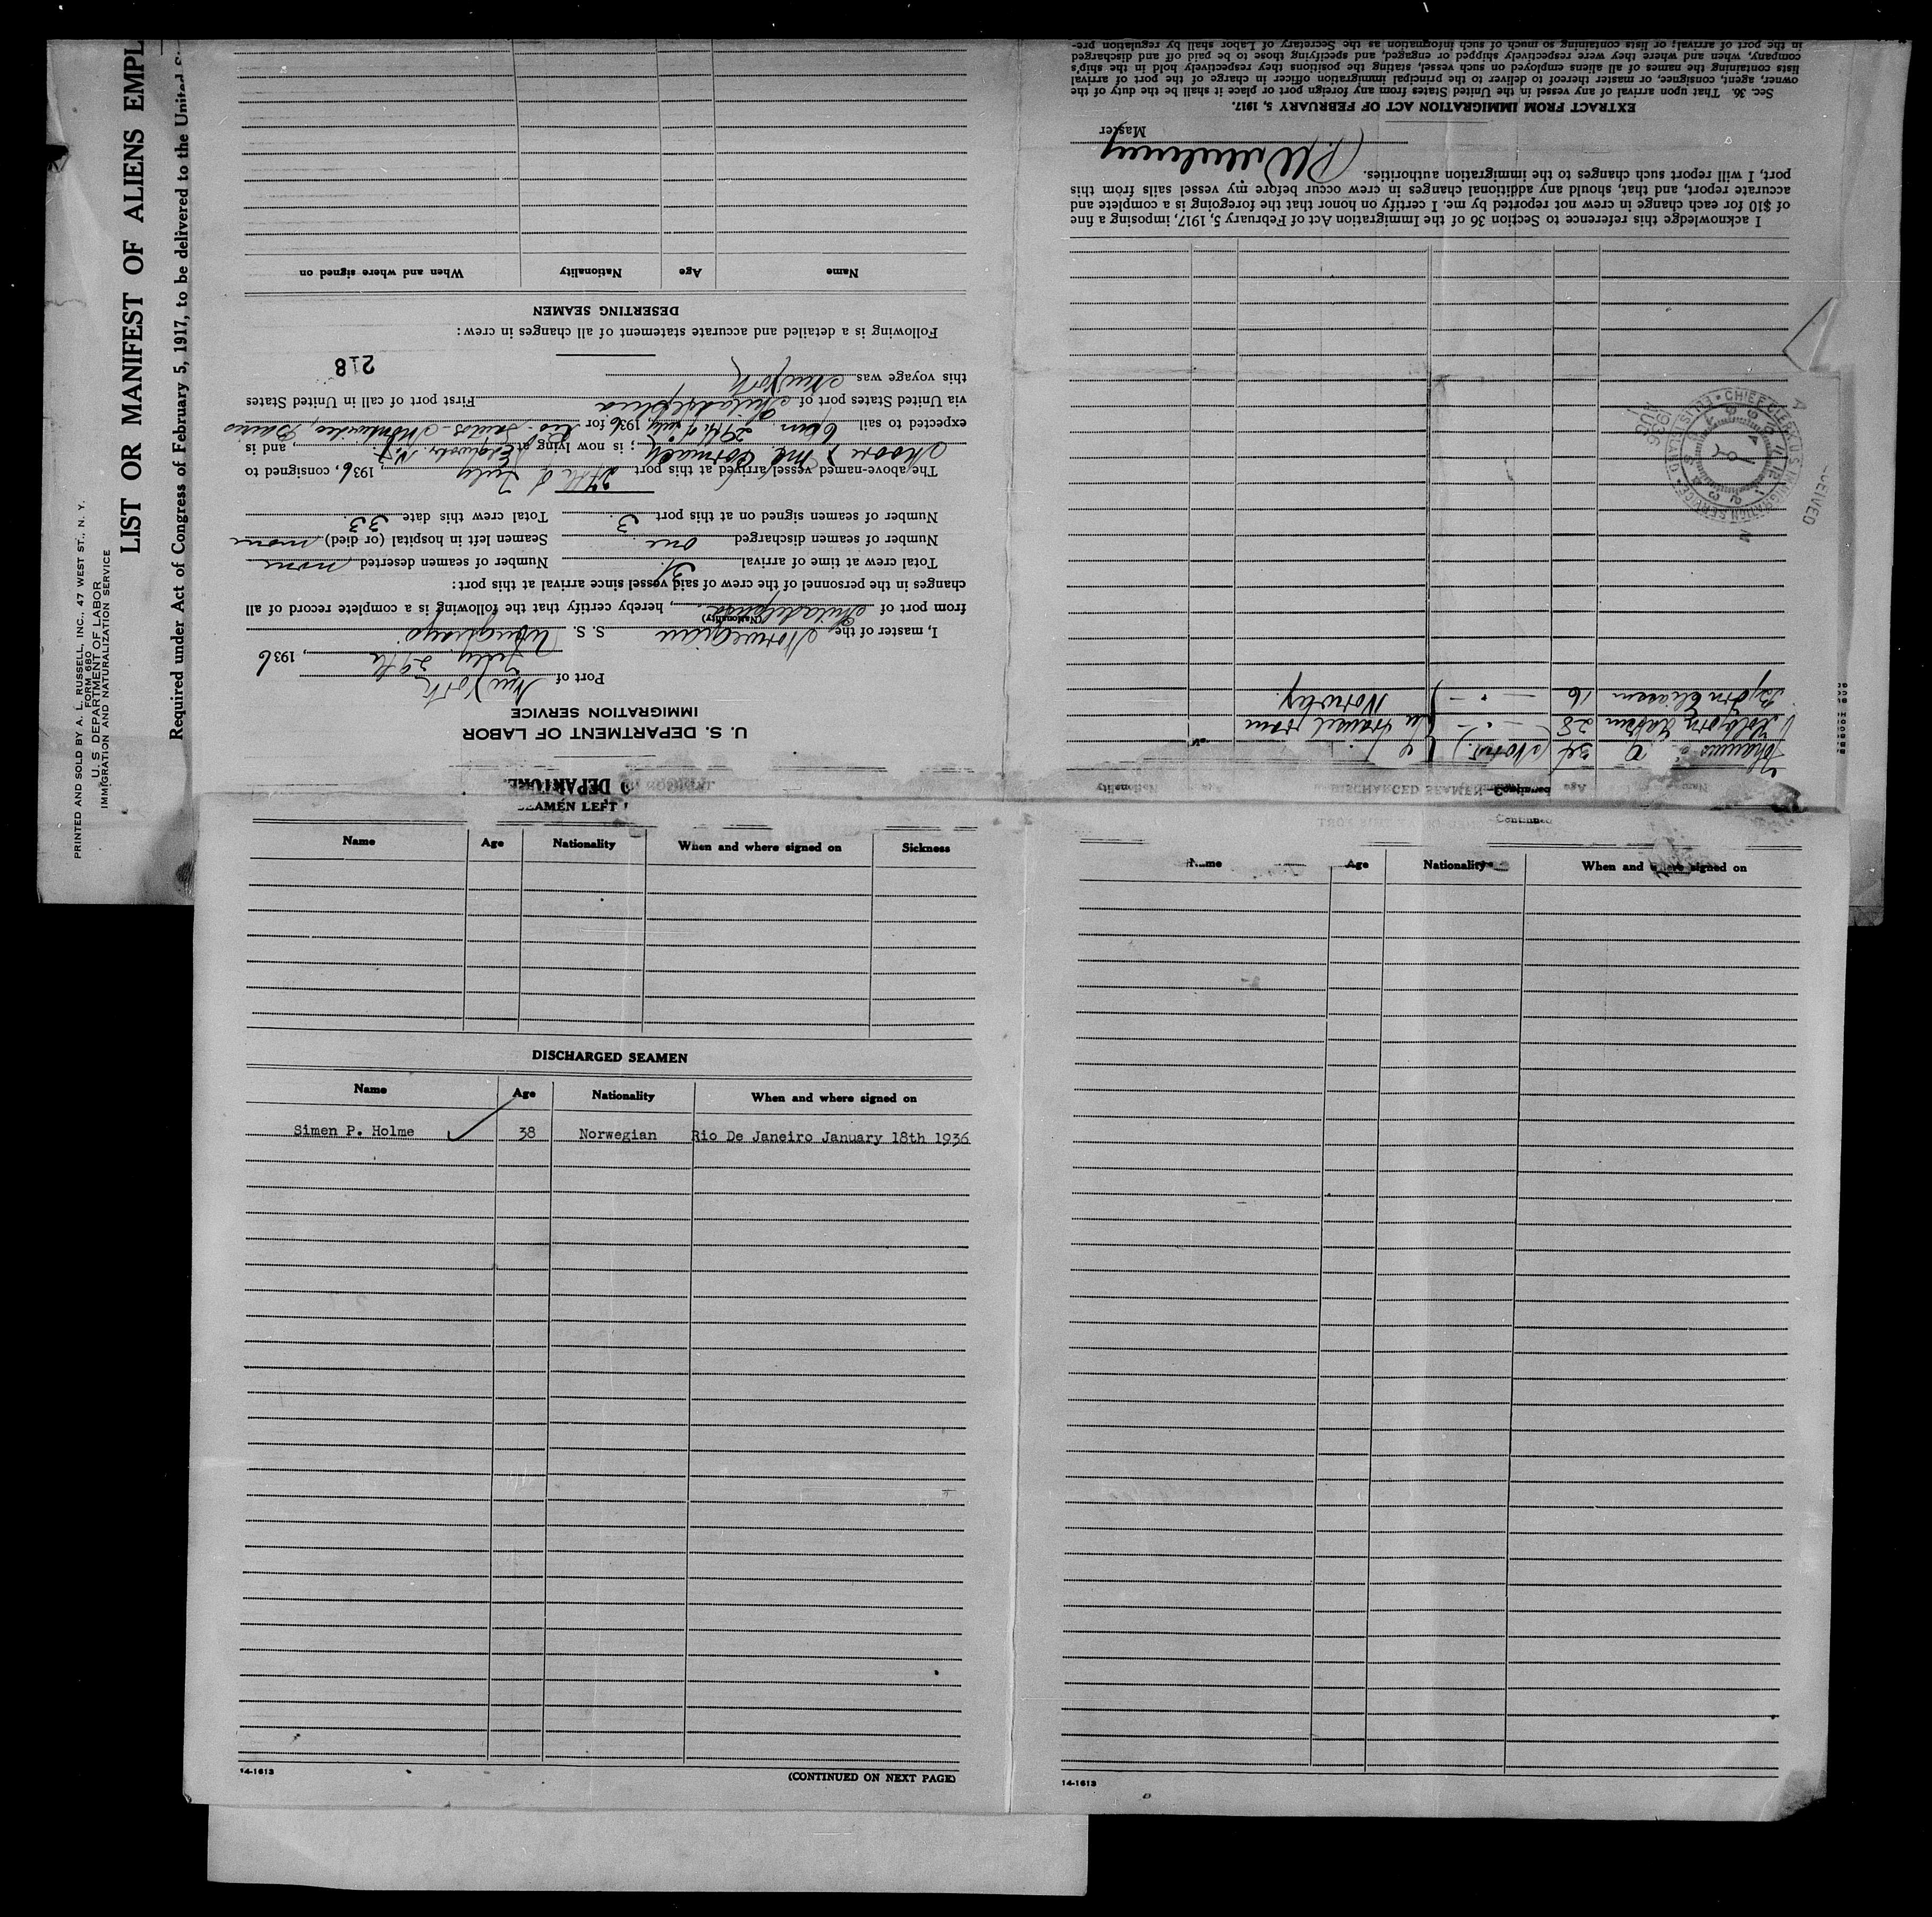 LIST OR MANIFEST OF ALIENS EMPL
Required under Act of Congress of February 5, 1917, to be delivered to the United S
PRINTED AND SOLD BY A. L. RUSSELL, INC., 47 WEST ST., N. Y.
FORM 680
U. S. DEPARTMENT OF LABOR
IMMIGRATION AND NATURALIZATION SERVICE
DEPARTURE
U. S. DEPARTMENT OF LABOR
IMMIGRATION SERVICE
Port of New York
July 29th, 1936
I, master of the Norwegian S. S.
(Nationality)
from port of Philadelphia, hereby certify that the following is a complete record of all
changes in the personnel of the crew of said vessel since arrival at this port:
Total crew at time of arrival 31. Number of seamen deserted none
Number of seamen discharged one Seamen left in hospital (or died) none
Number of seamen signed on at this port 3. Total crew this date 33.
The above-named vessel arrived at this port 27th of July, 1936, consigned to
Moore & Mc Cormack; is now lying at Edgewater N.J., and is
expected to sail 6 pm 29th of July 1936 for Rio - Santos - Montevideo, Buenos
via United States port of Philadelphia First port of call in United States
this voyage was New York
218
Following is a detailed and accurate statement of all changes in crew:
DESERTING SEAMEN
Name Age Nationality When and where signed on
SEAMEN LEFT
Name Age Nationality When and where signed on Sickness
DISCHARGED SEAMEN
Name Age Nationality When and where signed on
Simen P. Holme 38 Norwegian Rio De Janeiro January 18th 1936
14-1613
(CONTINUED ON NEXT PAGE)
DISCHARGED SEAMEN—Continued
Age Nationality
Johannes 34 (Norw.)
28 — " —
Bjørn Eliasen 16 — " — Norway.
I acknowledge this reference to Section 36 of the Immigration Act of February 5, 1917, imposing a fine
of $10 for each change in crew not reported by me. I certify on honor that the foregoing is a complete and
accurate report, and that, should any additional changes in crew occur before my vessel sails from this
port, I will report such changes to the immigration authorities.
Master
EXTRACT FROM IMMIGRATION ACT OF FEBRUARY 5, 1917.
Sec. 36. That upon arrival of any vessel in the United States from any foreign port or place it shall be the duty of the
owner, agent, consignee, or master thereof to deliver to the principal immigration officer in charge of the port of arrival
lists containing the names of all aliens employed on such vessel, stating the positions they respectively hold in the ship's
company, when and where they were respectively shipped or engaged, and specifying those to be paid off and discharged
in the port of arrival; or lists containing so much of such information as the Secretary of Labor shall by regulation pre-
CHIEF CLERK U S IMMIGRATION SERVICE
AUG
1936
Continued
Name Age Nationality When and where signed on
14-1613